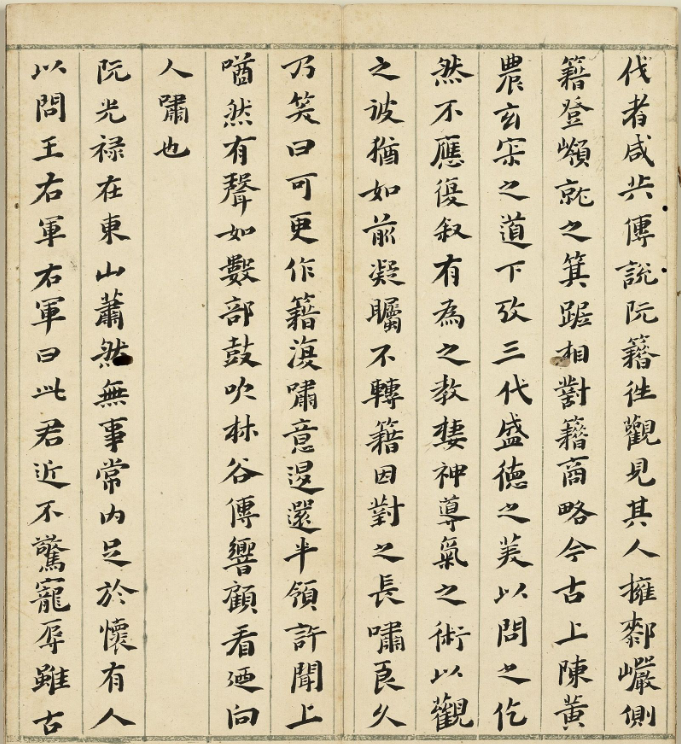 伐者咸共傳說阮籍徃觀見其人擁䣛巖側
籍登嶺就之箕踞相對籍商略今古上陳黃
農玄宗之道下攷三代盛德之美以問之仡
然不應復叙有為之教棲神導氣之術以觀
之彼猶如前凝矚不轉籍因對之長嘯良久
乃笑曰可更作籍復嘯意退還半領許聞上
㗜然有聲如數部鼓吹林谷傳響顧看廼向
人嘯也
阮光祿在東山蕭然無事常內足於懷有人
以問王右軍右軍曰此君近不驚寵辱雖古